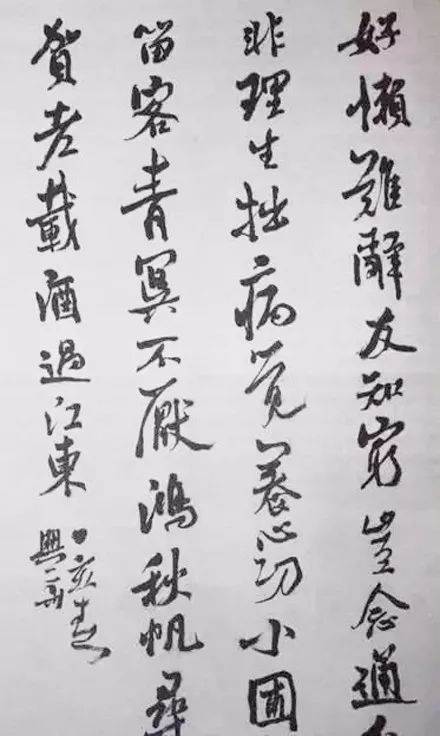 好懶難辭友知窮豈念通
非理生拙病覺養心功小圃
留客青冥不厭鴻秋帆尋
賀老載酒過江東
亥春